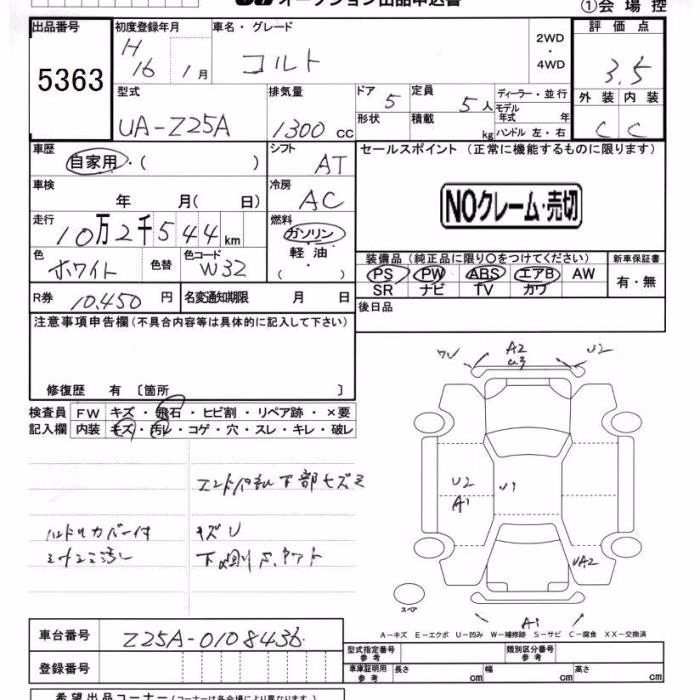 オークション出品申込書
①会場控
出品番号 5363
初度登録年月 H16 1月
車名・グレード コルト
2WD・4WD
評価点 3.5
外装 C 内装 C
型式 UA-Z25A
排気量 1300 cc
ドア 5
形状
定員 5人
積載 kg
ディーラー・並行
モデル年式 年
ハンドル 左・右
車歴 自家用・( )
シフト AT
セールスポイント (正常に機能するものに限ります)
NOクレーム・売切
車検 年 月( 日)
冷房 AC
走行 10万2千544km
燃料 ガソリン 軽油・( )
色 ホワイト 色替
色コード W32
装備品(純正品に限り○をつけてください)
PS PW ABS エアB AW
SR ナビ TV カワ
新車保証書 有・無
R券 10,450円
名変通知期限 月 日
後日品
注意事項申告欄(不具合内容等は具体的に記入して下さい)
修復歴 有〔箇所 〕
検査員記入欄
FW キズ・飛石・ヒビ割・リペア跡・×要
内装 キズ・汚レ・コゲ・穴・スレ・キレ・破レ
ハンドルカバー付
キズU
A2
U3
U2
U2
A1
U1
UA2
A1
スペア
A-キズ E-エクボ U-凹み W-補修跡 S-サビ C-腐食 XX-交換済
車台番号 Z25A-0108436
登録番号
型式指定番号 参考
類別区分番号 参考
車庫証明用 参考 長さ cm 幅 cm 高さ cm
希望出品コーナー(コーナーは各会場により異なります)